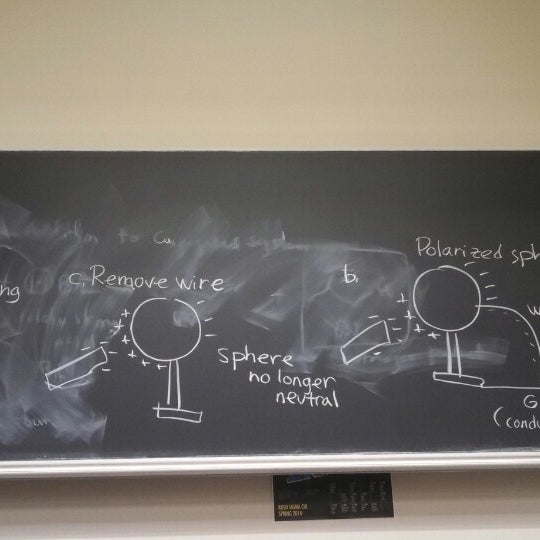 ng
c. Remove wire
sphere
no longer
neutral
b.
Polarized sph
w
G
(condu
RUSH SIGMA CHI
SPRING 2014